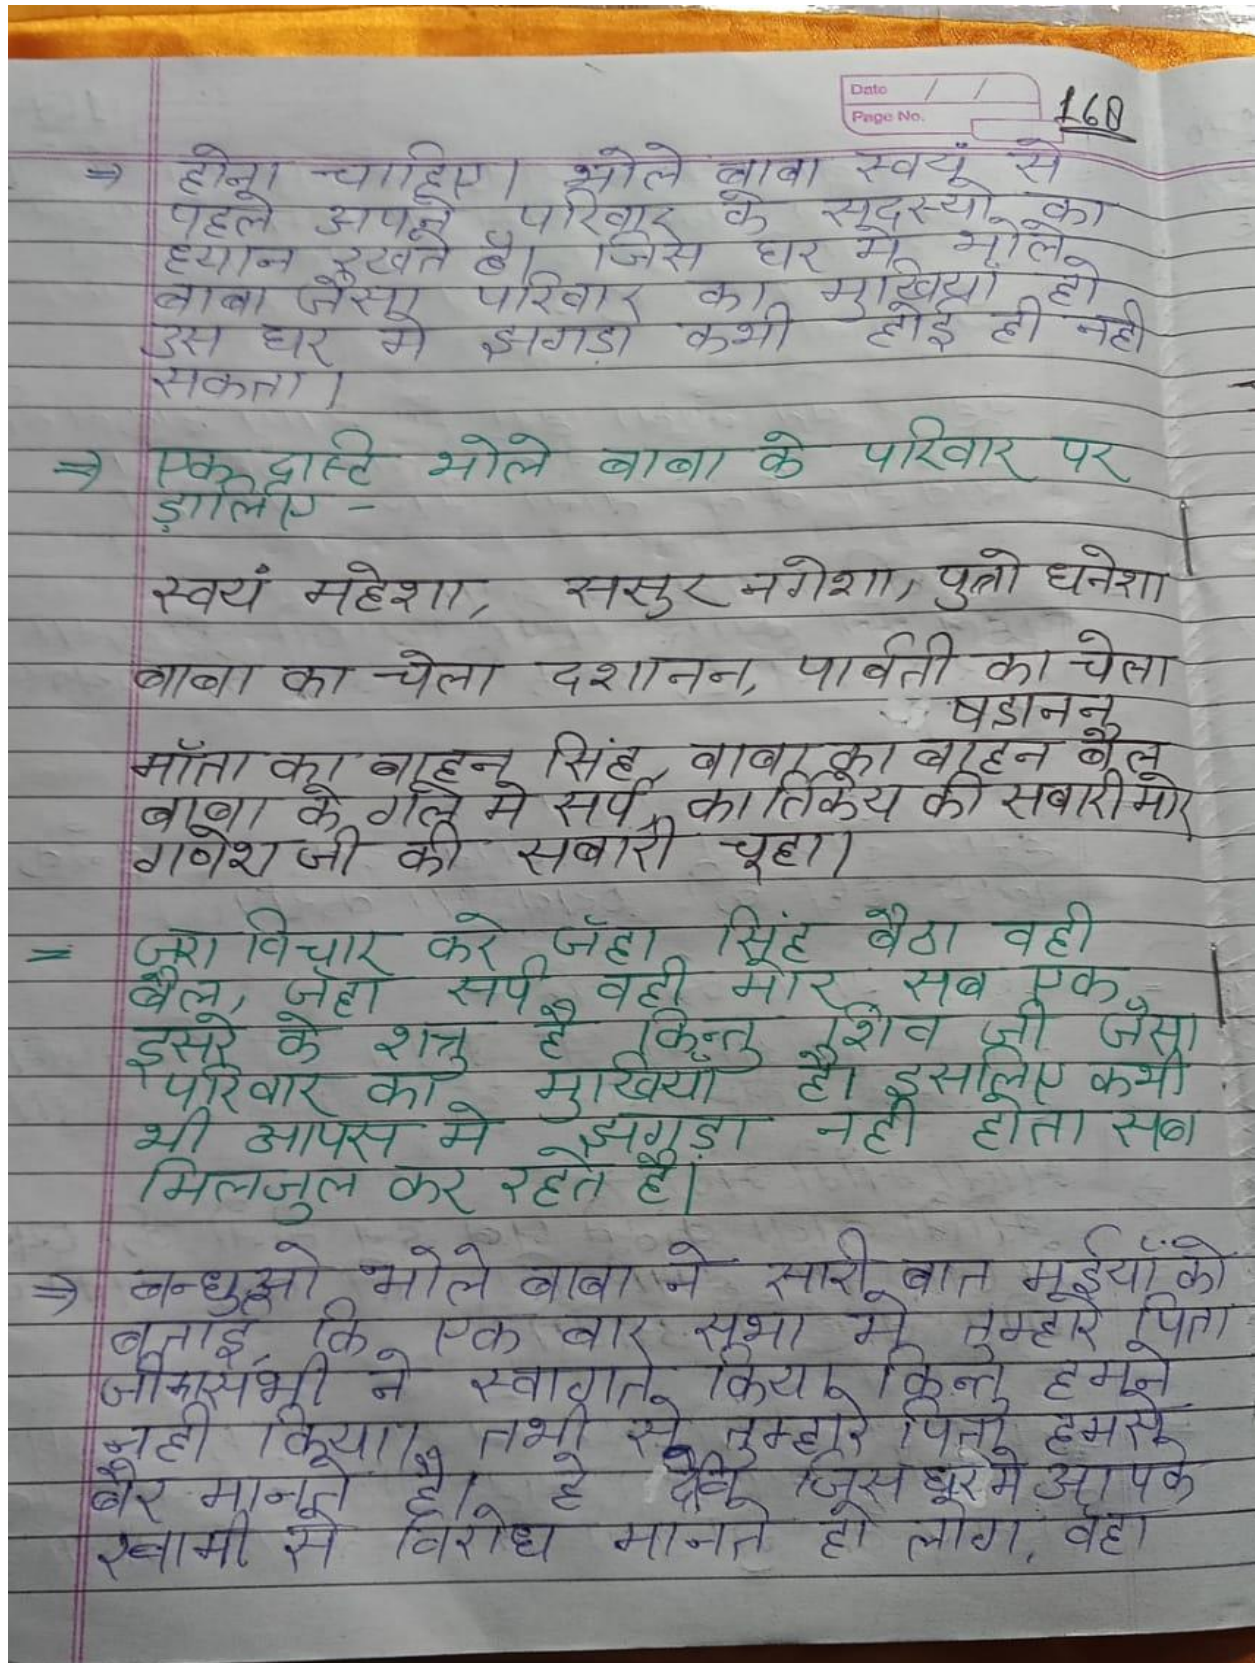 Date / /
Page No.
160
⇒ होना चाहिए। भोले बाबा स्वयं से
पहले अपने परिवार के सदस्यो का
ध्यान रखते है। जिस घर मे भोले
बाबा जैसा परिवार का मुखिया हो
उस घर मे झगड़ा कभी होई ही नही
सकता।
⇒ एक द्रष्टि भोले बाबा के परिवार पर
ड़ालिए -
स्वयं महेशा, ससुर नगेशा, पुत्रो घनेशा
बाबा का चेला दशानन, पार्वती का चेला
षडानन
मॉता का वाहन सिंह, बाबा का वाहन बैल
बाबा के गले मे सर्प, कार्तिकेय की सबारी मोर
गणेश जी की सबारी चूहा।
= जरा विचार करे जॅहा सिंह बैठा वही
बैल, जॅहा सर्प वही मोर सब एक
दूसरे के शत्रु है किन्तु शिव जी जैसा
परिवार का मुखियाँ है। इसलिए कभी
भी आपस मे झगड़ा नही होता सब
मिलजुल कर रहते है।
⇒ बन्धुओ भोले बाबा ने सारी बात मईयाँ को
बताई, कि एक बार सभा मे तुम्हारे पिता
जी का सभी ने स्वागत किया, किन्तु हमने
नही किया। तभी से तुम्हारे पिता हमसे
बैर मानते है। हे देवि जिस घर मे आपके
स्वामी से विरोध मानते हो लोग, वहा